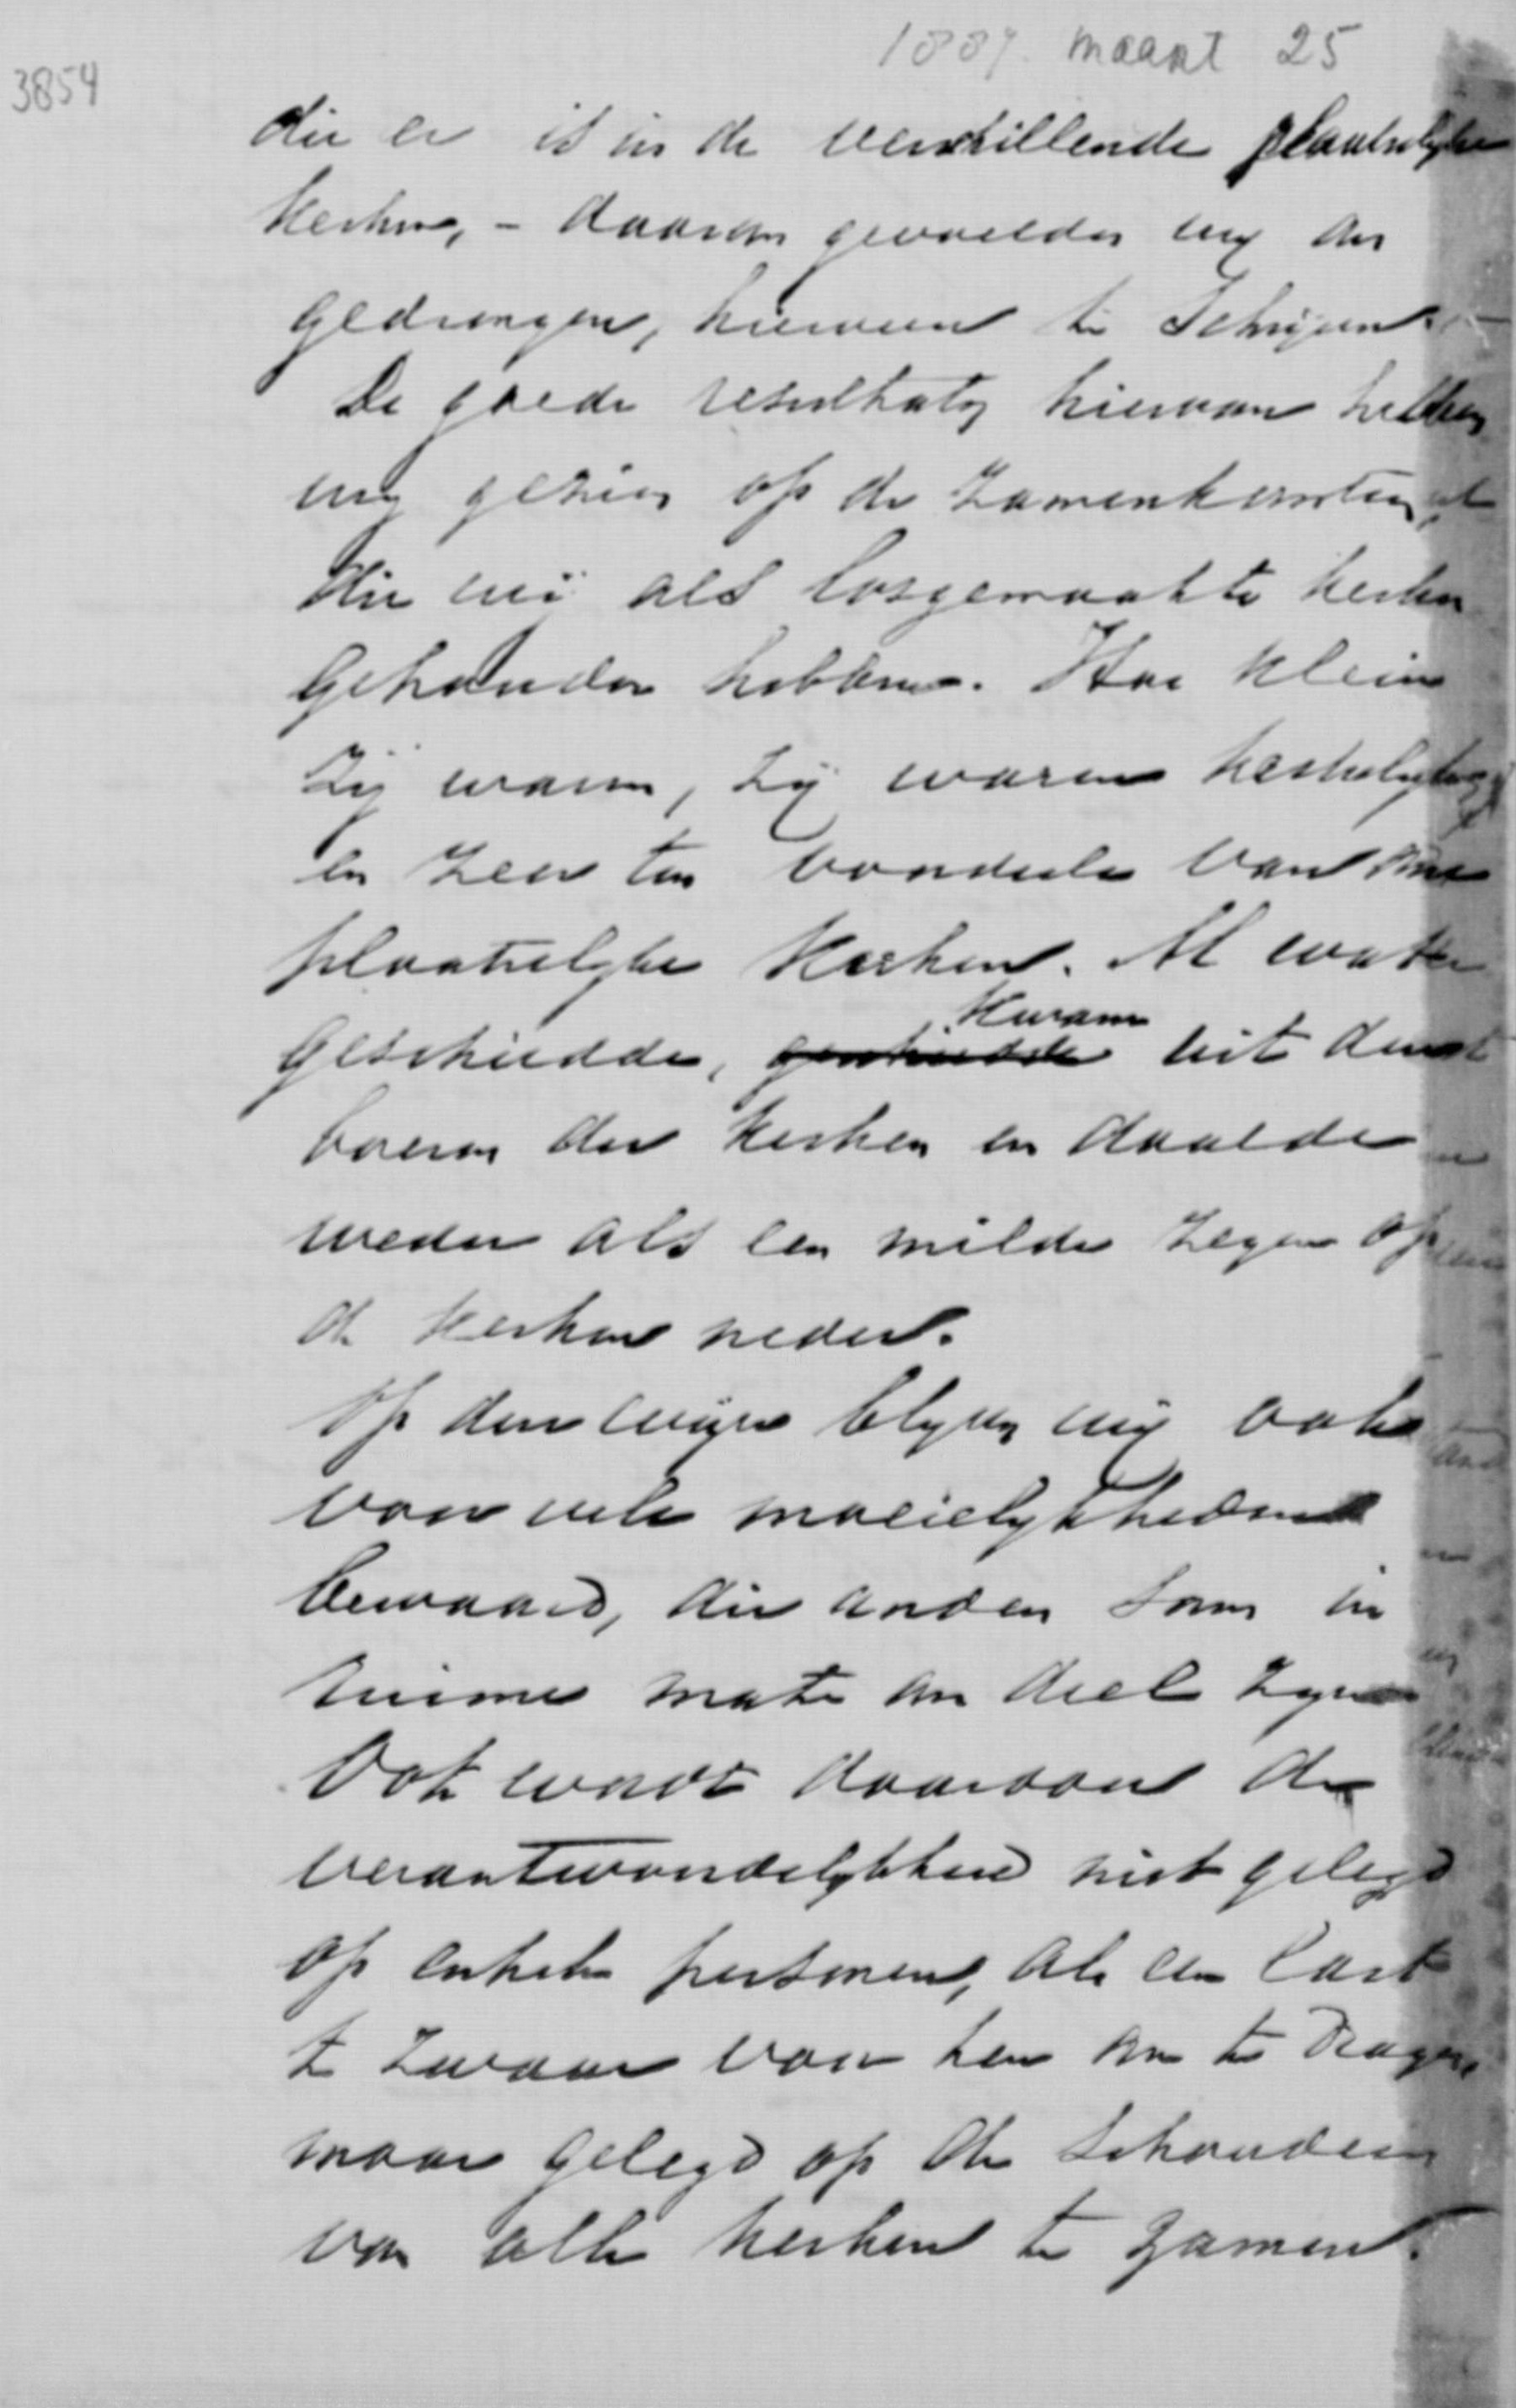 1887. maart 25
3854
die er is in de verschillende plaatselyke
kerken, - daarom gevoelden wy ons
gedrongen, hiervan te schrijven.
De goede resultaten hiervan hebben
wy gezien op de zamenkomsten,
die wij als losgemaakte kerken
gehouden hebben. Hoe klein
zij waren, zij waren kerkelyk
en zeer ten voordeele van onze
plaatselyke kerken. Al wat er
geschiedde, geschiedde kwam uit den
boezem der kerken en daalde
weder als een milde zegen op
de kerken neder.
Op deze wijze blyven wij ook
voor vele moeielykheden
bewaard, die anders soms in
ruime mate ons deel zyn.
Ook wordt daardoor de
verantwoordelykheid niet gelegd
op enkele personen, als een last
te zwaar voor hen om te dragen,
maar gelegd op de schouders
van alle kerken te zamen.